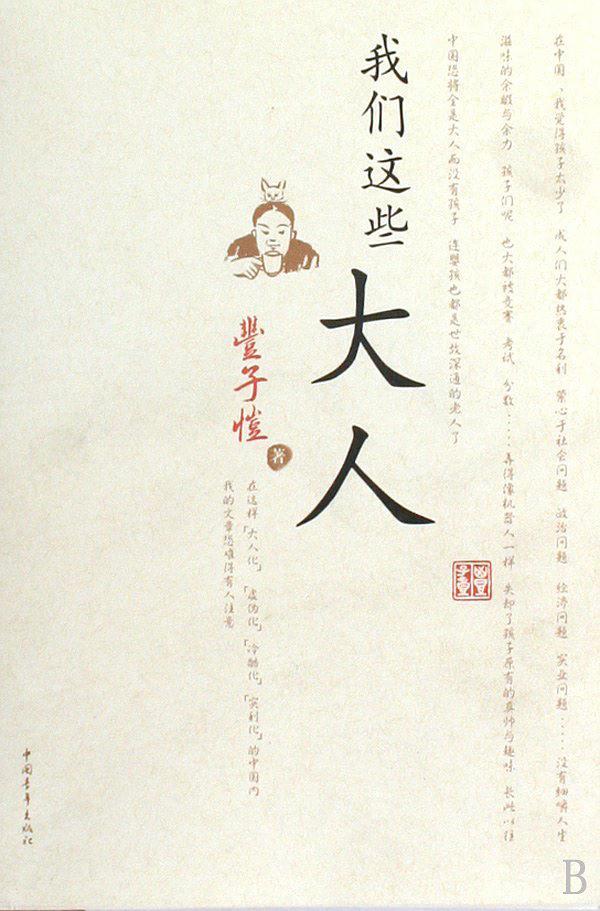 在中国、我觉得孩子太少了 成人们大都热衷于名利 萦心于社会问题 政治问题 经济问题 实业问题……没有细嚼人生
滋味的余暇与余力 孩子们呢 也大都被竞赛 考试 分数……弄得像机器人一样 失却了孩子原有的真率与趣味 长此以往
中国恐将全是大人而没有孩子 连婴孩也都是世故深通的老人了
我们这些
大人
豐子愷
著
在这样「大人化」「虚伪化」「冷酷化」「实利化」的中国内
我的文章恐难得有人注意
中国青年出版社
B